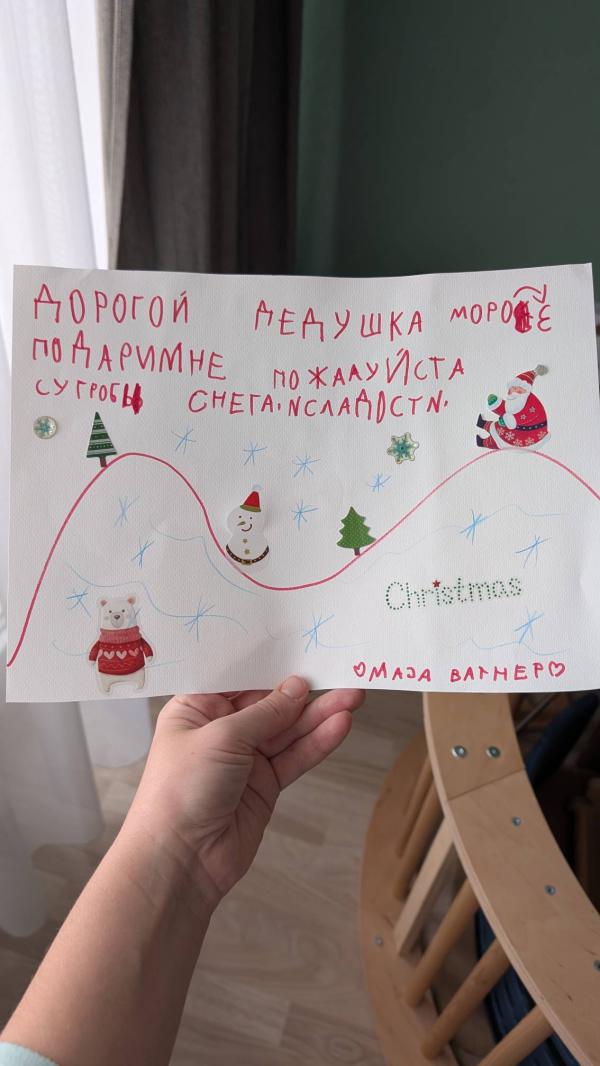 ДОРОГОЙ ДЕДУШКА МОРО
ПОДАРИМНЕ ПОЖАЛУЙСТА
СУГРОБЫ СНЕГА.ИСЛАДОСТИ.
Christmas
♡МАЗА ВАГНЕР♡